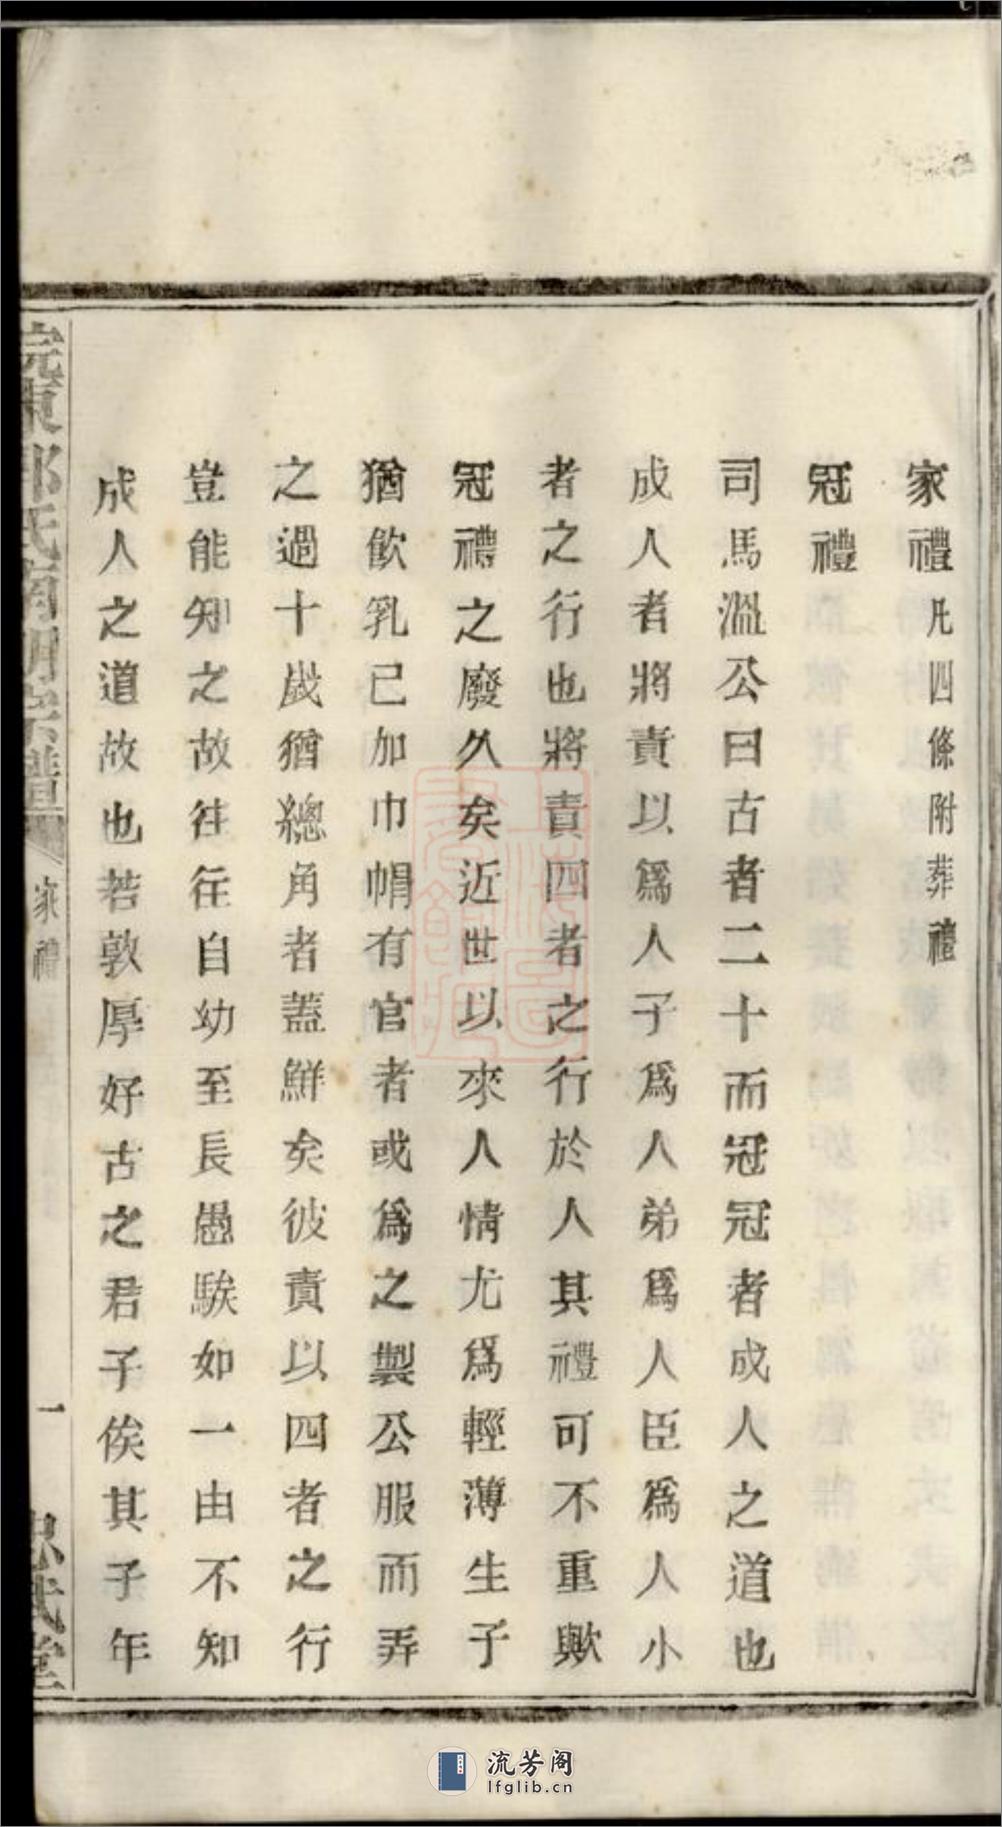 家禮凡四條附葬禮
冠禮
司馬溫公曰古者二十而冠冠者成人之道也
成人者將責以爲人子爲人弟爲人臣爲人小
者之行也將責四者之行於人其禮可不重歟
冠禮之廢久矣近世以來人情尤爲輕薄生子
猶飮乳已加巾帽有官者或爲之製公服而弄
之過十歲猶總角者蓋鮮矣彼責以四者之行
豈能知之故往往自幼至長愚騃如一由不知
成人之道故也若敦厚好古之君子俟其子年
東 氏 宗譜
家禮
一
流芳阁
lfglib.cn